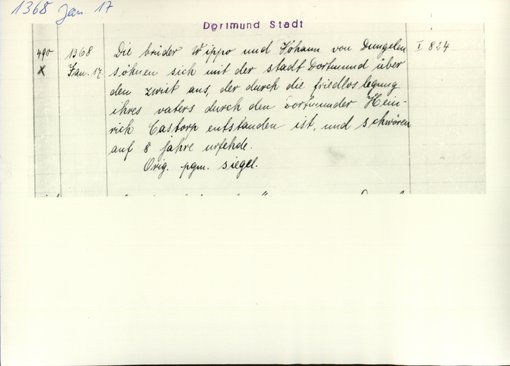 1368 Jan 17
Dortmund Stadt
490 1368 Die brüder Wippo und Johann von Dungelen I 824
X Jan. 17. söhnen sich mit der stadt Dortmund über
den zwist aus, der durch die friedloslegung
ihres vaters durch den Dortmunder Hein-
rich Castorp entstanden ist, und schwören
auf 8 jahre urfehde.
Orig. pgm. siegel.